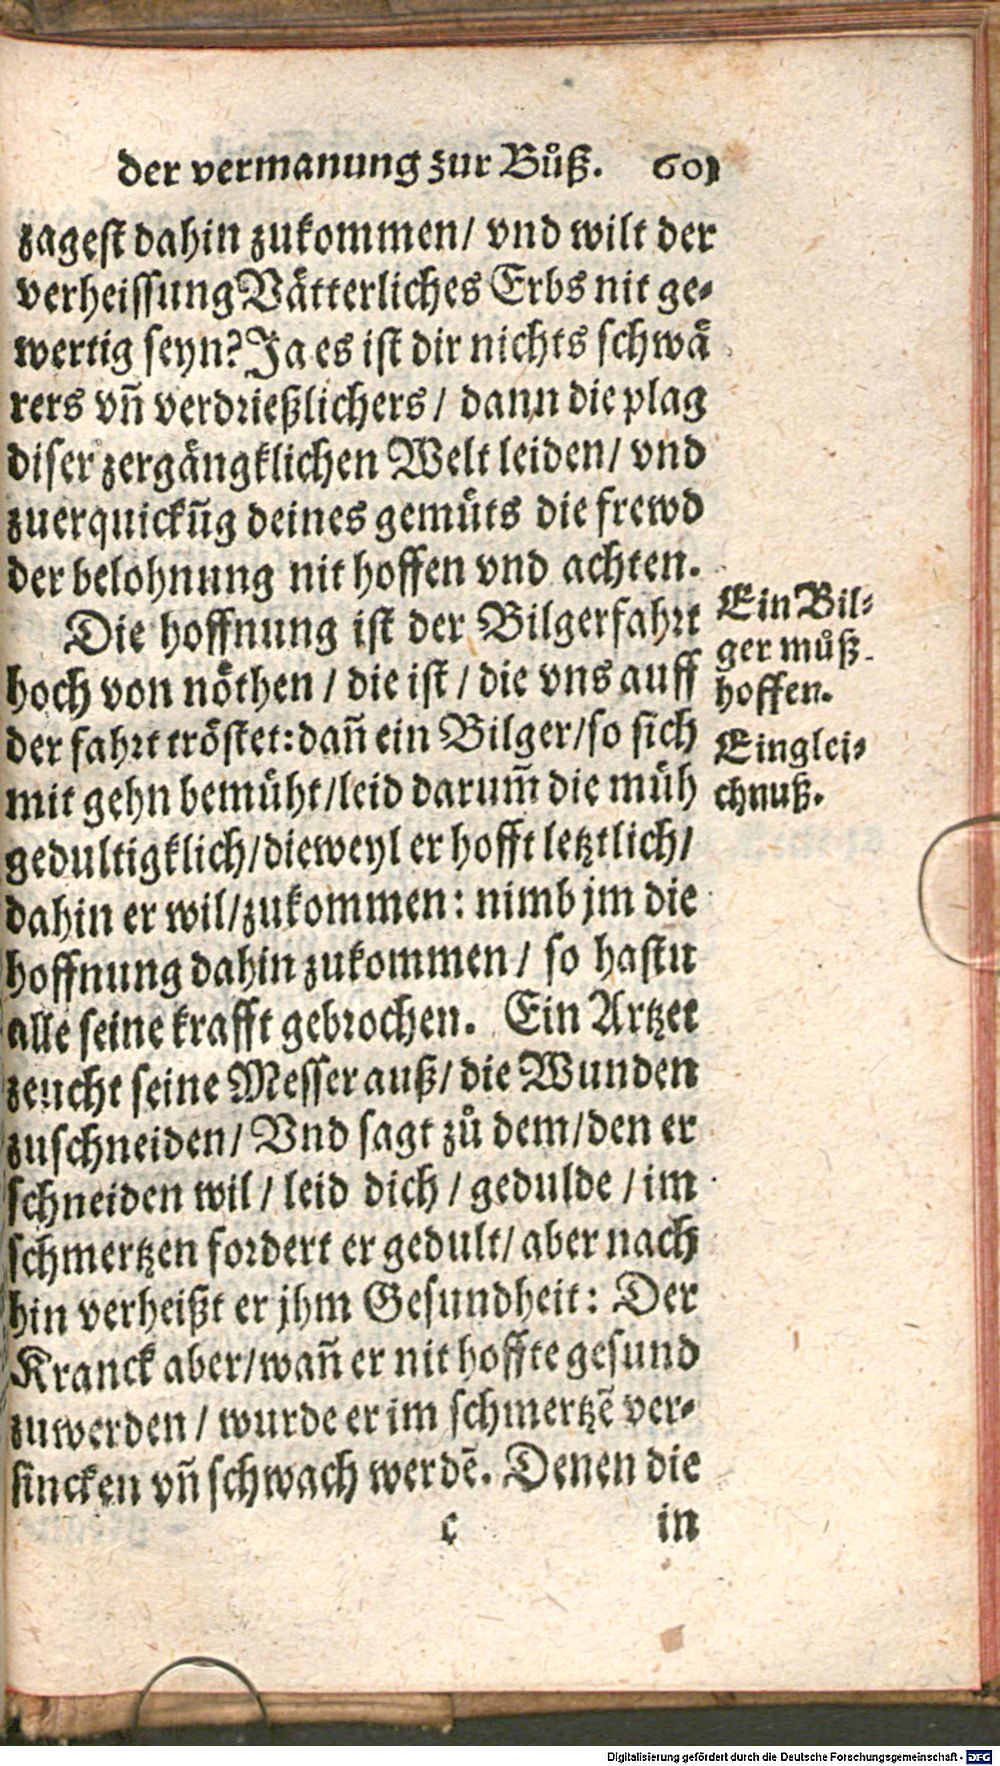 der vermanung zur Bůß. 60
zagest dahin zukommen/ vnd wilt der
verheissung Vätterliches Erbs nit ge-
wertig seyn? Ja es ist dir nichts schwä
rers vñ verdrießlichers/ dann die plag
diser zergängklichen Welt leiden/ vnd
zuerquickũg deines gemüts die frewd
der belohnung nit hoffen vnd achten.
Die hoffnung ist der Bilgerfahrt
hoch von nöthen/ die ist/ die vns auff
der fahrt tröstet: dañ ein Bilger/ so sich
mit gehn bemüht/ leid darum̃ die müh
gedultigklich/ dieweyl er hofft letztlich/
dahin er wil/ zukommen: nimb jm die
hoffnung dahin zukommen/ so hastu
alle seine krafft gebrochen. Ein Artzet
zeucht seine Messer auß/ die Wunden
zuschneiden/ Vnd sagt zů dem/ den er
schneiden wil/ leid dich/ gedulde/ im
schmertzen fordert er gedult/ aber nach
hin verheißt er jhm Gesundheit: Der
Kranck aber/ wañ er nit hoffte gesund
zuwerden/ wurde er im schmertzẽ ver-
sincken vñ schwach werdẽ. Denen die
c in
Ein Bil-
ger můß
hoffen.
Ein glei-
chnuß.
Digitalisierung gefördert durch die Deutsche Forschungsgemeinschaft - DFG